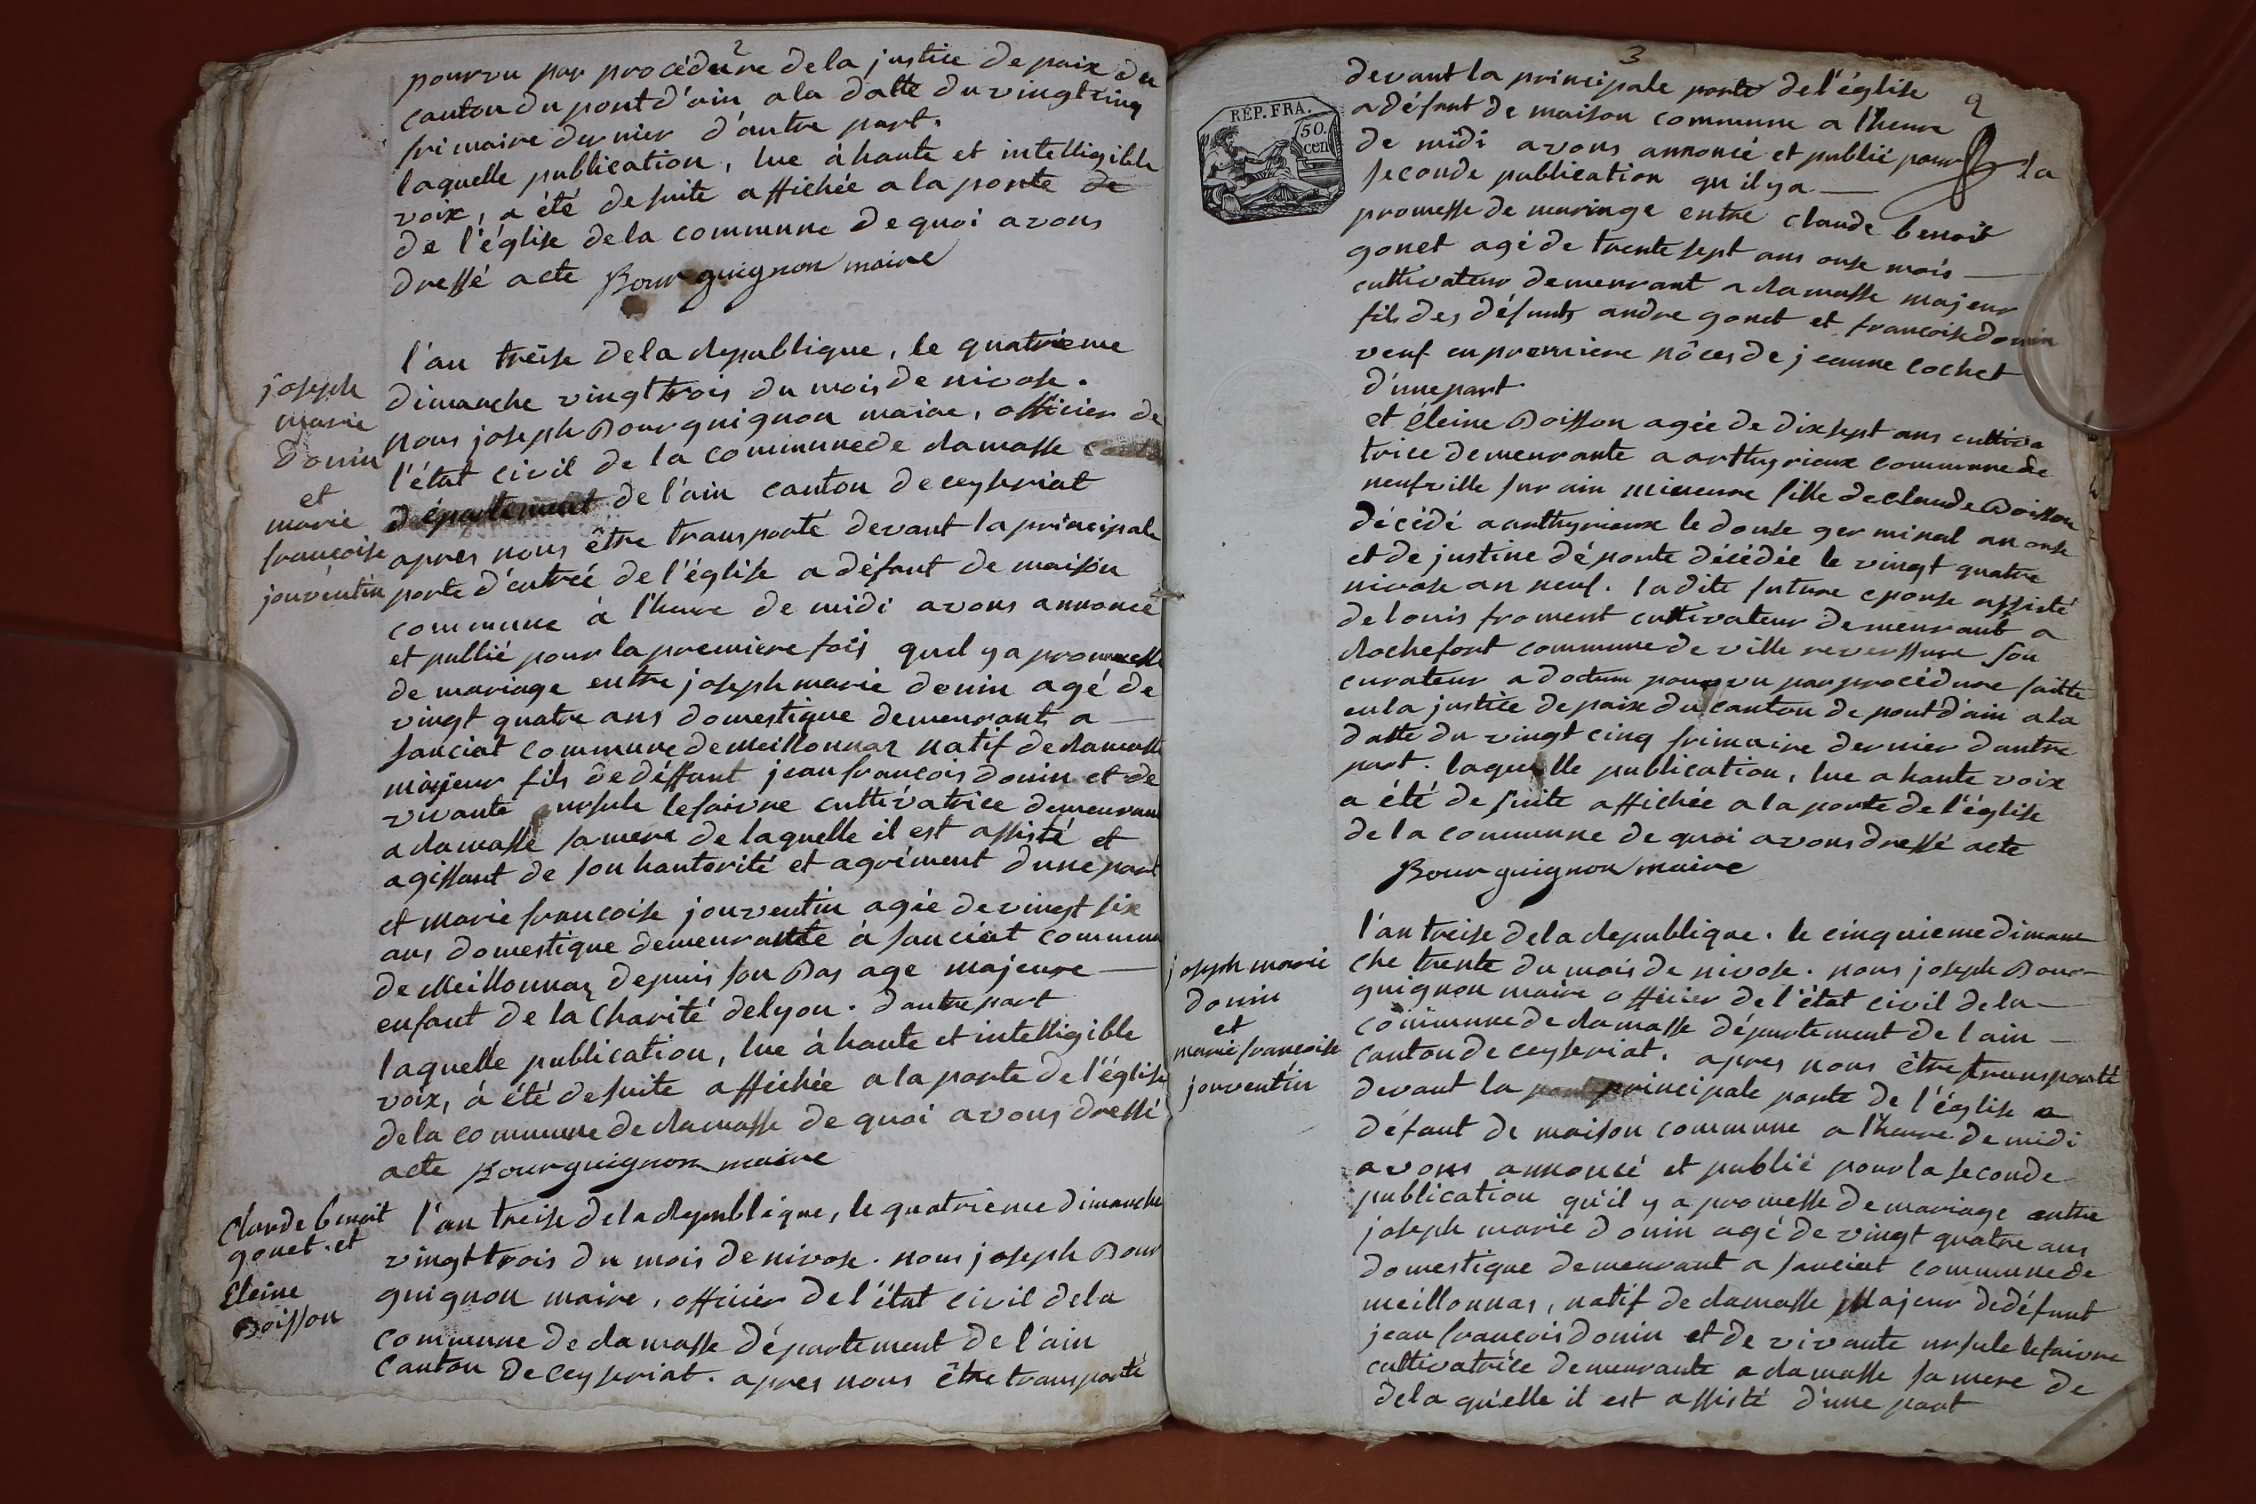 2
pourvu par procédure de la justice de paix du
canton du pont d'ain a la datte du vingt cinq
frimaire dernier d'autre part.
laquelle publication, lue à haute et intelligible
voix, a été de suite affichée a la porte de
de l'église de la commune de quoi avons
dressé acte Bourguignon maire
joseph
marie
donin
et
marie
françoise
jouventin
l'an treise de la republique, le quatrième
dimanche vingt trois du mois de nivose.
nous joseph Bourguignon maire, officier de
l'état civil de la commune de ramasse
département de l'ain canton de ceyseriat
apres nous être transporté devant la principale
porte d'entrée de l'église a défaut de maison
commune à l'heure de midi avons annoncé
et publié pour la premiere fois quel y a promesse
de mariage entre joseph marie donin agé de
vingt quatre ans domestique demeurant a
sanciat commune de meillonnaz natif de ramasse
majeur fils de déffunt jean françois donin et de
vivante ursule lefaivre cultivatrice demeurant
a ramasse sa mere de laquelle il est assisté et
agissant de son hautorité et agrément d'une part
et marie françoise jouventin agée de vingt six
ans domestique demeurante à sanciat commune
de Meillonnaz depuis son Bas age majeure
enfant de la Charité de lyon. d'autre part
laquelle publication, lue à haute et intelligible
voix, à été de suite affichée a la porte de l'église
de la commune de ramasse de quoi avons dressé
acte Bourguignon maire
Claude benoit
gonet. et
éleine
Boisson
l'an treise de la republique, le quatrième dimanche
vingt trois du mois de nivose. nous joseph Bour
guignon maire, officier de l'état civil de la
commune de ramasse département de l'ain
Canton de ceyseriat. apres nous être transporté
3
2
RÉP. FRA.
50.
cen
devant la principale porte de l'église
a défaut de maison commune a l'heure
de midi avons annoncé et publié pour la
seconde publication qu'il y a
promesse de mariage entre claude benoit
gonet agé de trente sept ans onse mois
cultivateur demeurant a ramasse majeur
fils des défunts andre gonet et françoise donin
veuf en premiere nôces de jeanne cochet
d'une part.
et éleine Boisson agée de dix sept ans cultiva
trice demeurante a arthyrieux commune de
neufville sur ain mineure fille de claude Boisson
décédé a arthyrieux le douse germinal an onse
et de justine déporte décédée le vingt quatre
nivose an neuf. la dite future epouse assisté
de louis froment cultivateur demeurant a
Rochefort commune de ville reverssure son
curateur adoctum pourvu par procédure faitte
en la justice de paix du canton de pont d'ain a la
datte du vingt cinq frimaire dernier d'autre
part. laquelle publication, lue a haute voix
a été de suite affichée a la porte de l'église
de la commune de quoi avons dressé acte
Bourguignon maire
joseph marie
donin
et
marie françoise
jouventin
l'an treise de la republique. le cinquieme diman
che trente du mois de nivose. nous joseph Bour
guignon maire officier de l'état civil de la
commune de ramasse département de l'ain
canton de ceyseriat. apres nous être transporté
devant la principale porte de l'église a
défaut de maison commune a l'heure de midi
avons annoncé et publié pour la seconde
publication qu'il y a promesse de mariage entre
joseph marie donin agé de vingt quatre ans
domestique demeurant a sanciat commune de
meillonnas, natif de ramasse Majeur de défunt
jean françois donin et de vivante ursule lefaivre
cultivatrice demeurante a ramasse sa mere de
de la qu'elle il est assisté d'une part